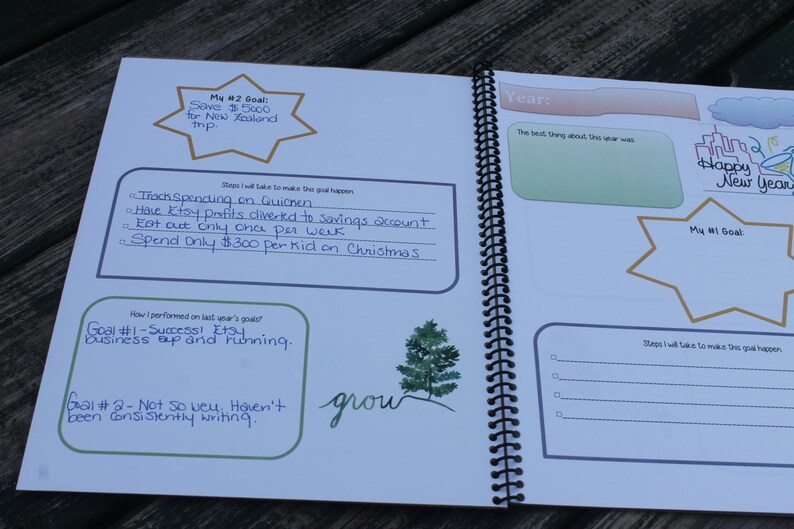 My #2 Goal:
Save $5000
for New Zealand
trip.
Steps I will take to make this goal happen
Track spending on Quicken
Have Etsy profits diverted to savings account
Eat out only once per week
Spend Only $300 per kid on Christmas
How I performed on last year's goals?
Goal #1 - Success! Etsy
business up and running.
Goal #2 - Not so well. Haven't
been consistently writing.
grow
Year:
The best thing about this year was:
Happy
New Year
My #1 Goal:
Steps I will take to make this goal happen